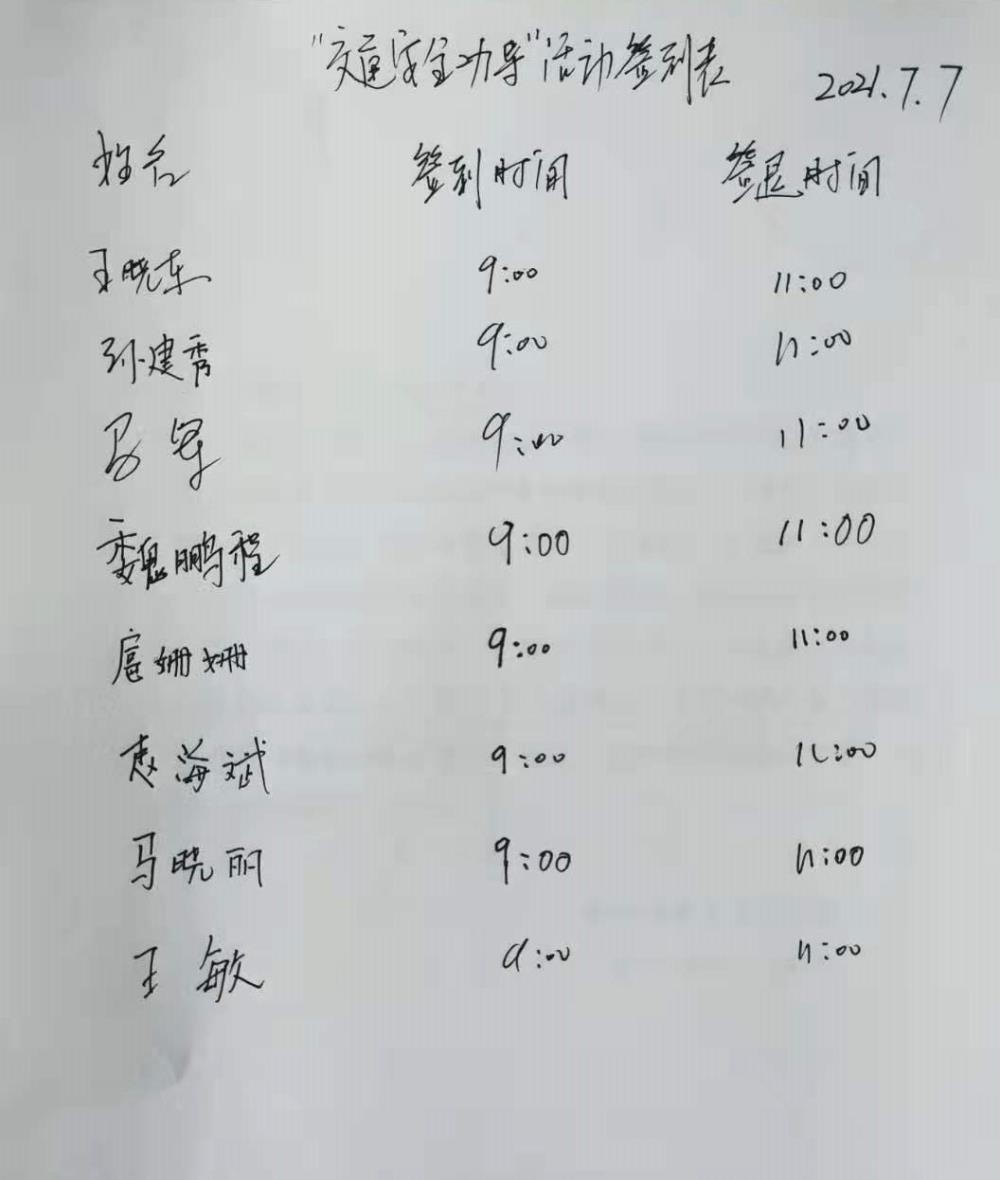 “交通安全劝导”活动签到表 2021.7.7
姓名 签到时间 签退时间
王晓东 9:00 11:00
孙建秀 9:00 11:00
马军 9:00 11:00
魏鹏程 9:00 11:00
扈姗姗 9:00 11:00
海斌 9:00 11:00
马晓丽 9:00 11:00
王敏 9:00 11:00